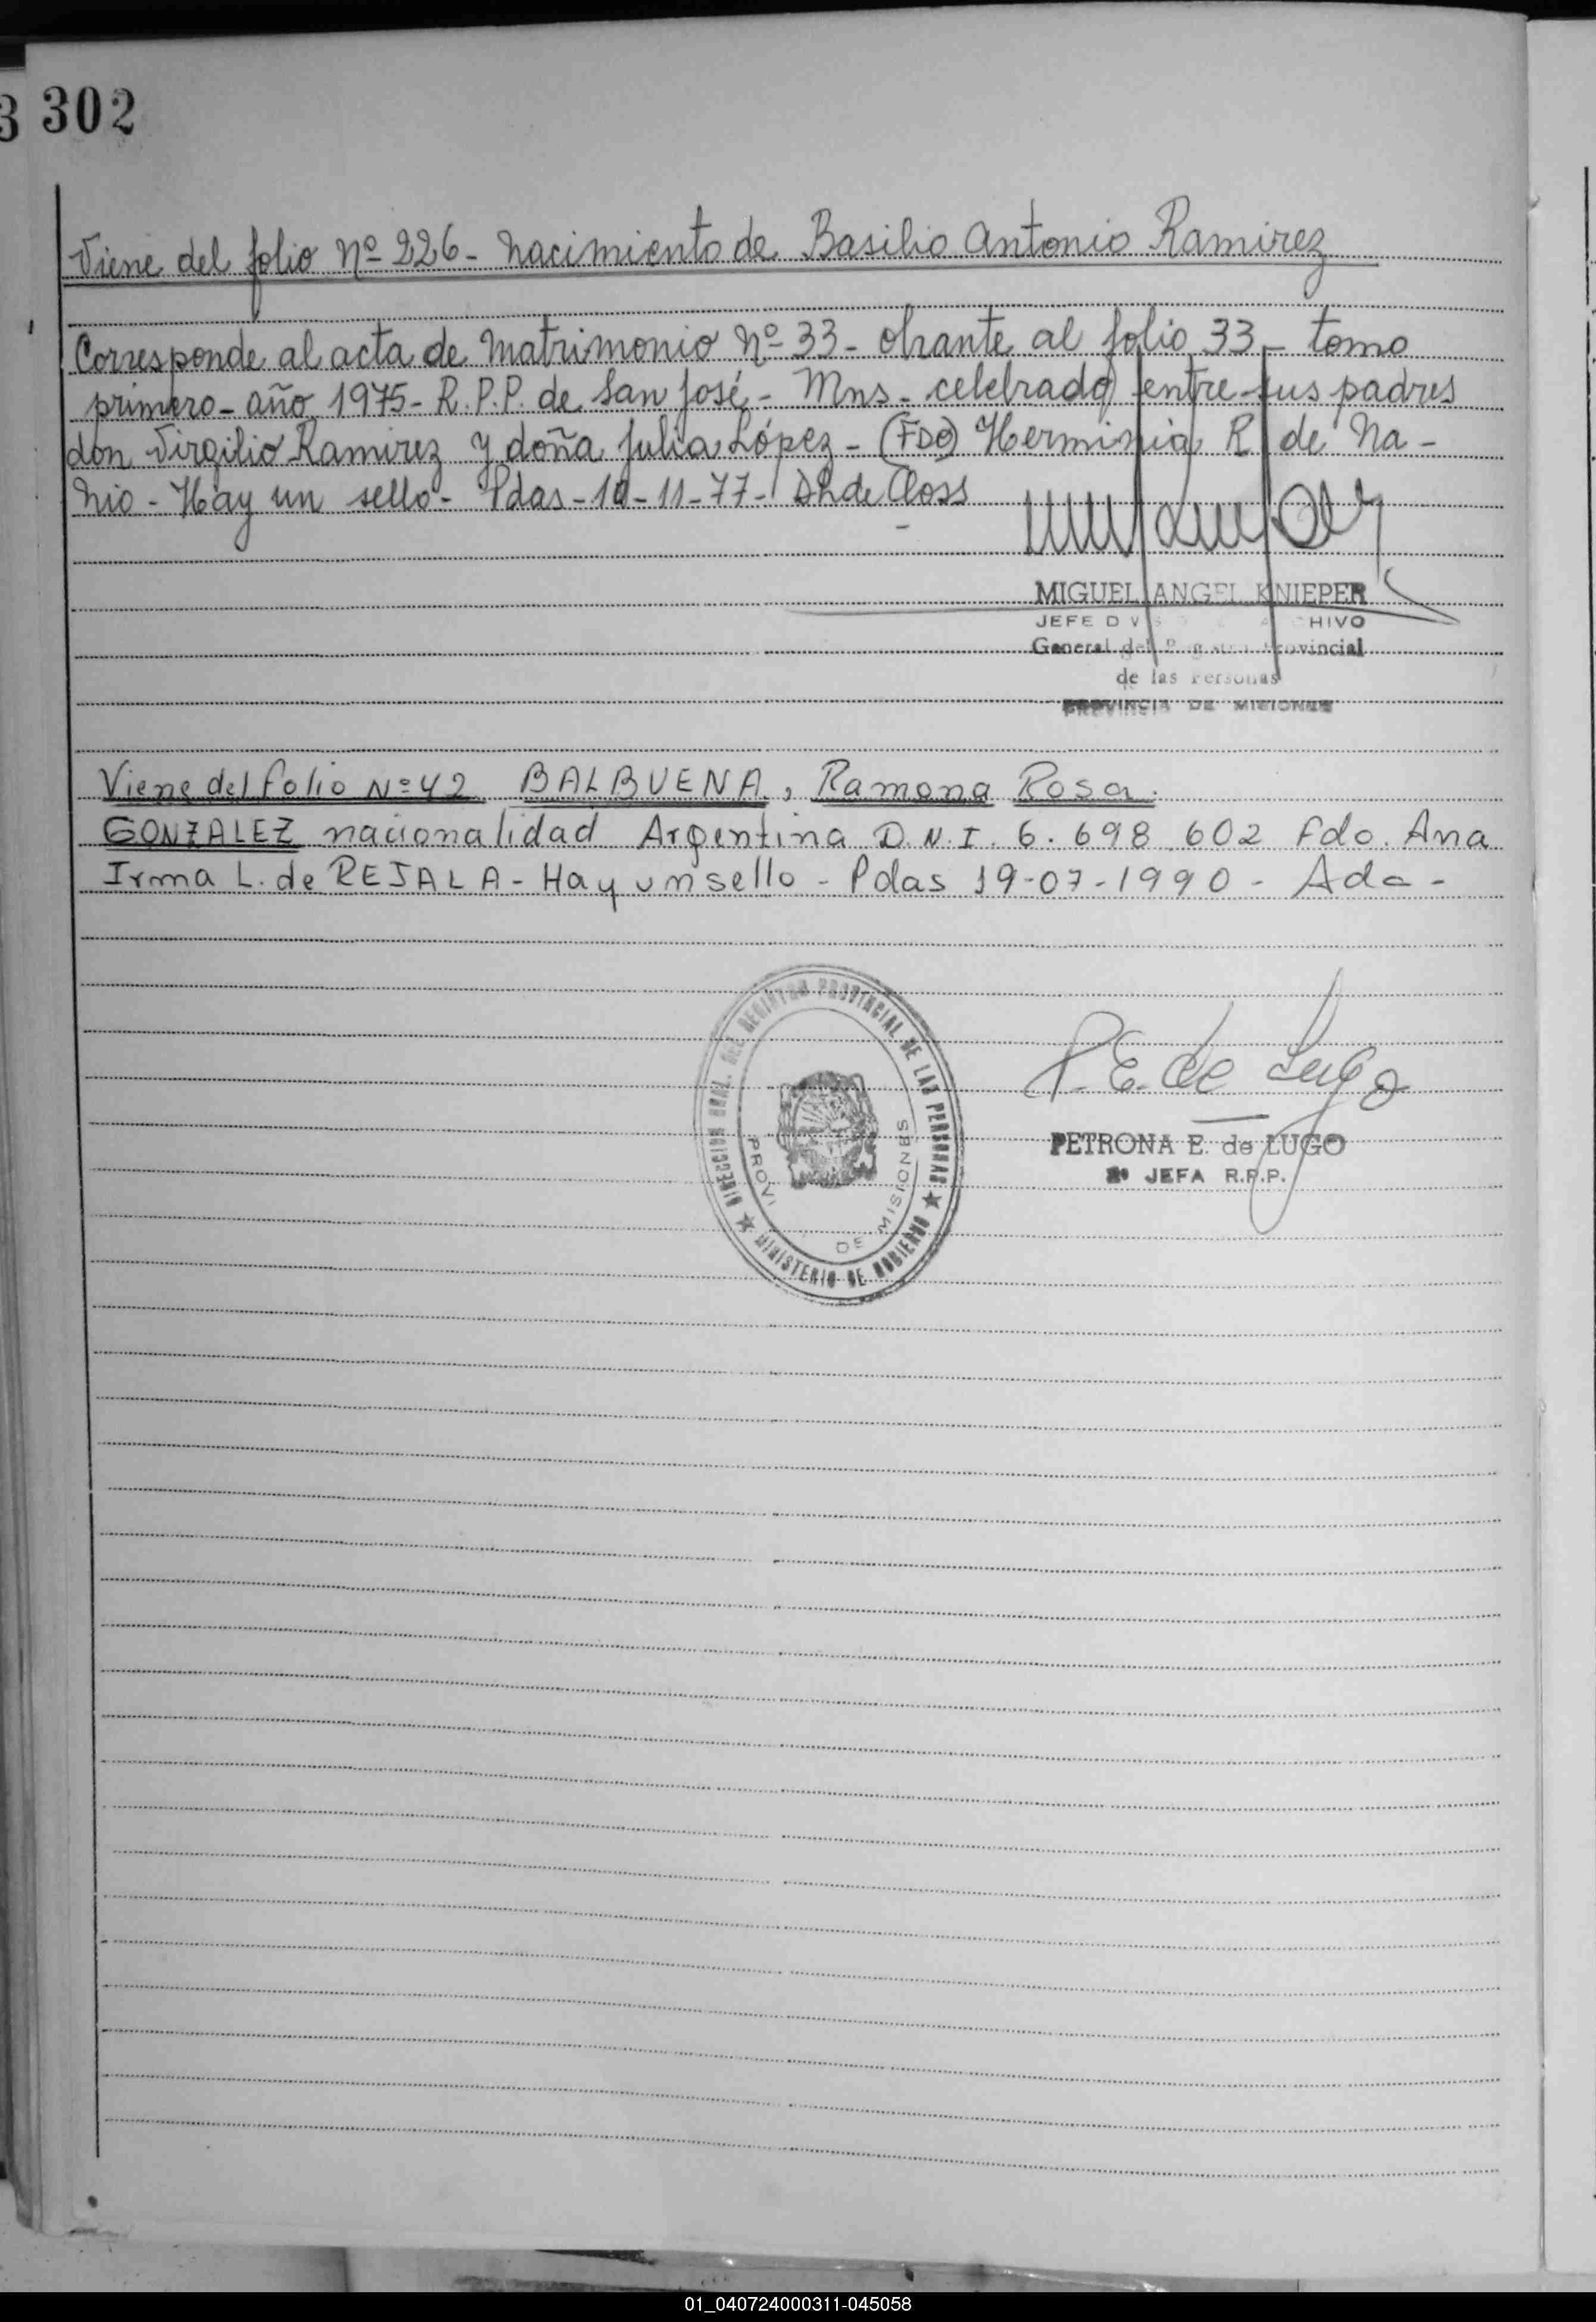 3 302
Viene del folio Nº 226 - Nacimiento de Basilio Antonio Ramirez
Corresponde al acta de Matrimonio Nº 33 - obrante al folio 33 - tomo
primero - año 1975 - R.P.P. de San José - Mns - celebrado entre sus padres
don Virgilio Ramirez y doña Julia López - (FDO) Herminia R de Na-
nio - Hay un sello - Pdas - 10-11-77 - de Closs
MIGUEL ANGEL KNIEPER
JEFE HIVO
General del Provincial
de las Personas
PROVINCIA DE MISIONES
Viene del folio Nº 42 BALBUENA, Ramona Rosa.
GONZALEZ nacionalidad Argentina D.N.I. 6.698.602 Fdo. Ana
Irma L. de REJALA - Hay un sello - Pdas 19-07-1990 - Ada -
DIRECCION GRAL. DEL REGISTRO PROVINCIAL DE LAS PERSONAS
MINISTERIO DE GOBIERNO
PROVI DE MISIONES
P. E. de Lugo
PETRONA E. de LUGO
2º JEFA R.P.P.
01_040724000311-045058